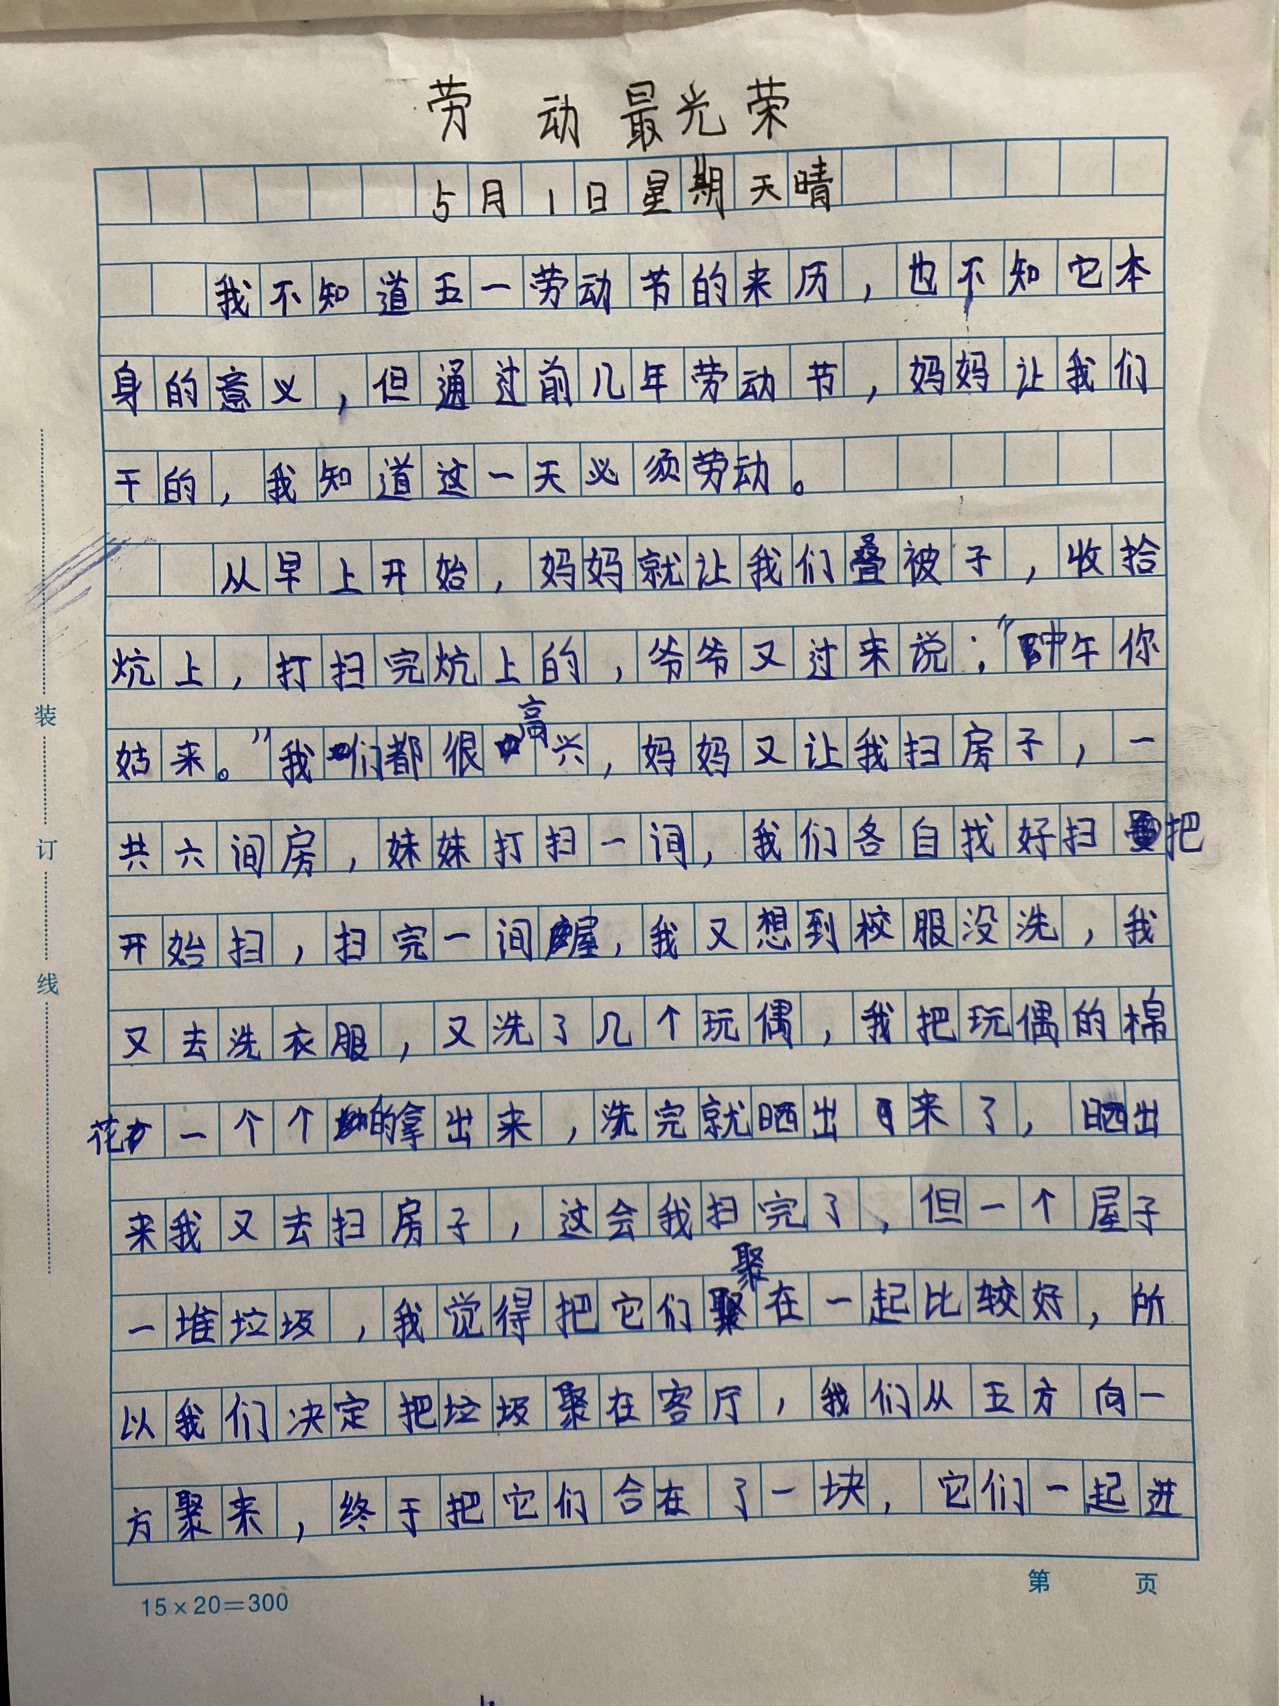 劳动最光荣
5月1日星期天晴
我不知道五一劳动节的来历，也不知它本
身的意义，但通过前几年劳动节，妈妈让我们
干的，我知道这一天必须劳动。
从早上开始，妈妈就让我们叠被子，收拾
炕上，打扫完炕上的，爷爷又过来说：“中午你
姑来。”我们都很高兴，妈妈又让我扫房子，一
共六间房，妹妹打扫一间，我们各自找好扫把
开始扫，扫完一间屋，我又想到校服没洗，我
又去洗衣服，又洗了几个玩偶，我把玩偶的棉
花一个个的拿出来，洗完就晒出来了，晒出
来我又去扫房子，这会我扫完了，但一个屋子
一堆垃圾，我觉得把它们聚在一起比较好，所
以我们决定把垃圾聚在客厅，我们从五方向一
方聚来，终于把它们合在了一块，它们一起进
装
订
线
15×20=300
第 页